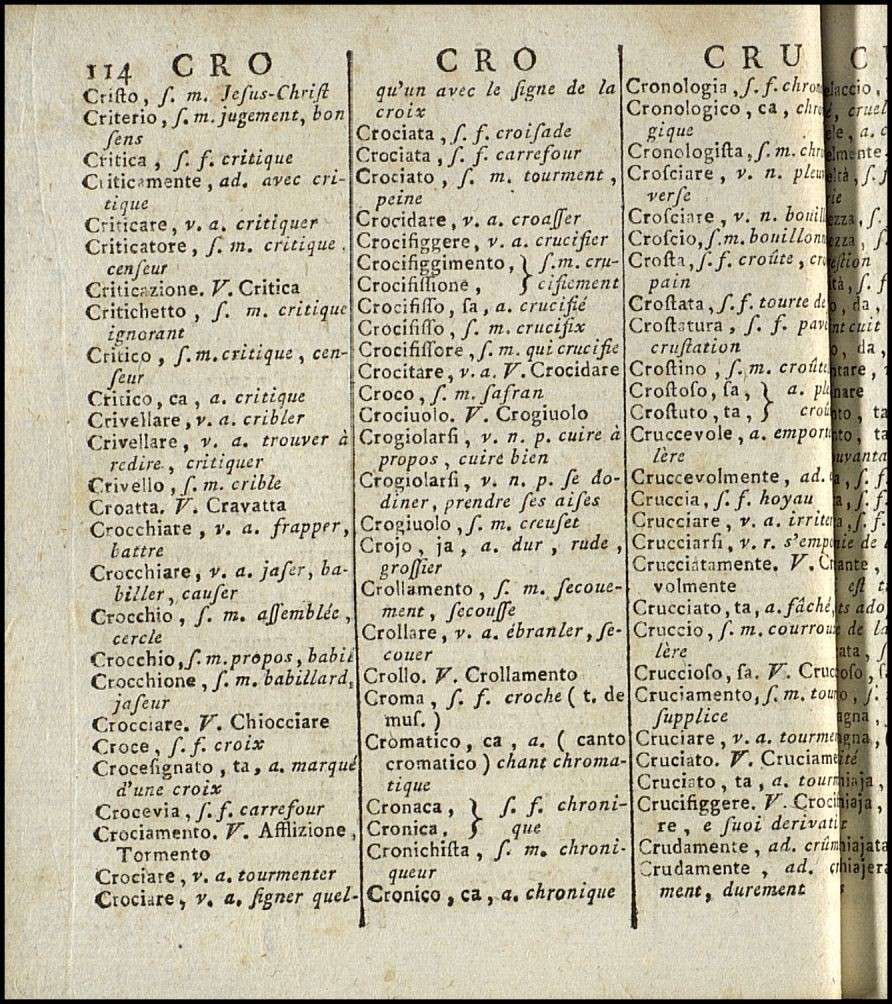 114 CRO
Criſto, ſ. m. Jeſus-Chriſt
Criterio, ſ. m. jugement, bon
ſens
Critica, ſ. f. critique
Criticamente, ad. avec cri-
tique
Criticare, v. a. critiquer
Criticatore, ſ. m. critique,
cenſeur
Criticazione. V. Critica
Critichetto, ſ. m. critique
ignorant
Critico, ſ. m. critique, cen-
ſeur
Critico, ca, a. critique
Crivellare, v. a. cribler
Crivellare, v. a. trouver à
redire, critiquer
Crivello, ſ. m. crible
Croatta. V. Cravatta
Crocchiare, v. a. frapper,
battre
Crocchiare, v. a. jaſer, ba-
biller, cauſer
Crocchio, ſ. m. aſſemblée,
cercle
Crocchio, ſ. m. propos, babil
Crocchione, ſ. m. babillard,
jaſeur
Crocciare. V. Chiocciare
Croce, ſ. f. croix
Croceſignato, ta, a. marqué
d'une croix
Crocevia, ſ. f. carrefour
Crociamento. V. Afflizione,
Tormento
Crociare, v. a. tourmenter
Crociare, v. a. ſigner quel-
CRO
qu'un avec le ſigne de la
croix
Crociata, ſ. f. croiſade
Crociata, ſ. f. carrefour
Crociato, ſ. m. tourment,
peine
Crocidare, v. a. croaſſer
Crocifiggere, v. a. crucifier
Crocifiggimento, } ſ. m. cru-
Crocifiſſione, } cifiement
Crocifiſſo, ſa, a. crucifié
Crocifiſſo, ſ. m. crucifix
Crocifiſſore, ſ. m. qui crucifie
Crocitare, v. a. V. Crocidare
Croco, ſ. m. ſafran
Crociuolo. V. Crogiuolo
Crogiolarſi, v. n. p. cuire à
propos, cuire bien
Crogiolarſi, v. n. p. ſe do-
diner, prendre ſes aiſes
Crogiuolo, ſ. m. creuſet
Crojo, ja, a. dur, rude,
groſſier
Crollamento, ſ. m. ſecoue-
ment, ſecouſſe
Crollare, v. a. ébranler, ſe-
couer
Crollo. V. Crollamento
Croma, ſ. f. croche ( t. de
muſ. )
Cromatico, ca, a. ( canto
cromatico ) chant chroma-
tique
Cronaca, } ſ. f. chroni-
Cronica, } que
Cronichiſta, ſ. m. chroni-
queur
Cronico, ca, a. chronique
CRU
Cronologia, ſ. f. chron
Cronologico, ca, chro
gique
Cronologiſta, ſ. m. chro
Croſciare, v. n. pleu
verſe
Croſciare, v. n. bouil
Croſcio, ſ. m. bouillonn
Croſta, ſ. f. croûte, cro
pain
Croſtata, ſ. f. tourte de
Croſtatura, ſ. f. pav
cruſtation
Croſtino, ſ. m. croûte
Croſtoſo, ſa, } a. ple
Croſtuto, ta, } croû
Cruccevole, a. emport
lère
Cruccevolmente, ad.
Cruccia, ſ. f. hoyau
Crucciare, v. a. irrite
Crucciarſi, v. r. s'emp
Crucciatamente. V. C
volmente
Crucciato, ta, a. fâché,
Cruccio, ſ. m. courroux
lère
Cruccioſo, ſa. V. Cruc
Cruciamento, ſ. m. tou
ſupplice
Cruciare, v. a. tourme
Cruciato. V. Cruciame
Cruciato, ta, a. tourm
Crucifiggere. V. Croci
re, e ſuoi derivati
Crudamente, ad. crûm
Crudamente, ad. c
ment, durement